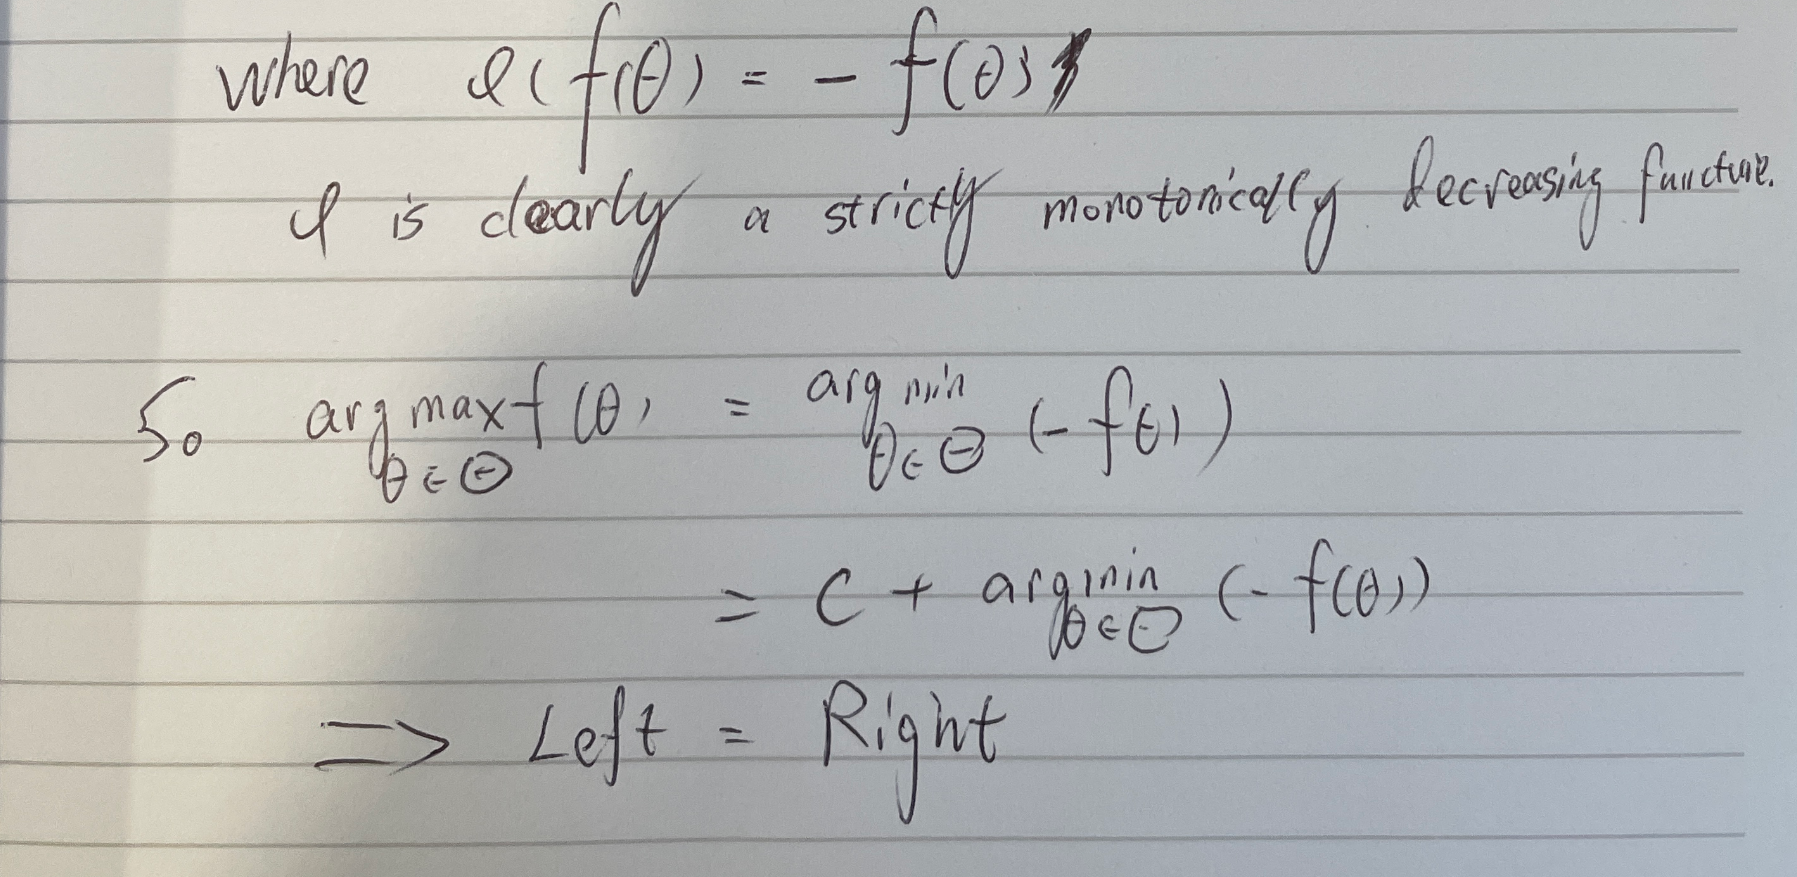 where l(f(θ)) = - f(θ)
l is clearly a strictly monotonically decreasing function.
So arg max f(θ) = arg min (- f(θ))
θ∈Θ θ∈Θ
= C + argmin (- f(θ))
θ∈Θ
⇒ Left = Right